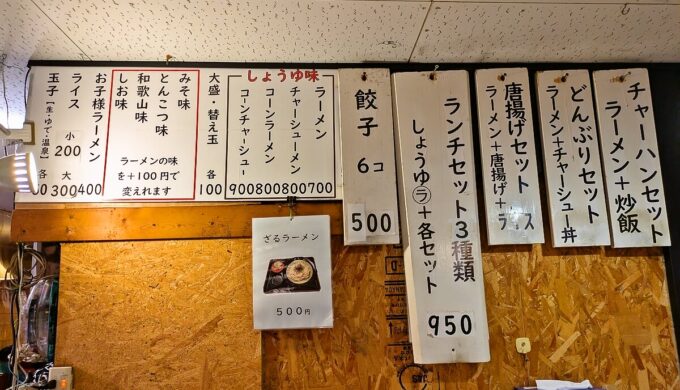 チャーハンセット
ラーメン+炒飯
どんぶりセット
ラーメン+チャーシュー丼
唐揚げセット
ラーメン+唐揚げ+ライス
ランチセット3種類
しょうゆラ+各セット
950
餃子 6コ
500
しょうゆ味
ラーメン
700
チャーシューメン
800
コーンラーメン
800
コーンチャーシュー
900
大盛・替え玉 各
100
みそ味
とんこつ味
和歌山味
しお味
ラーメンの味
を+100円で
変えれます
お子様ラーメン
400
ライス 小 大
200
300
玉子【生・ゆで・温泉】各
ざるラーメン
500円